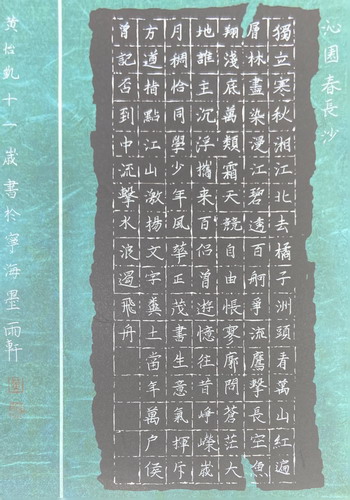 沁園春長沙
獨立寒秋湘江北去橘子洲頭看萬山紅遍
層林盡染漫江碧透百舸爭流鷹擊長空魚
翔淺底萬類霜天競自由悵寥廓問蒼茫大
地誰主沉浮攜来百侶曾遊憶往昔崢嶸嵗
月稠恰同學少年風華正茂書生意氣揮斥
方遒指點江山激揚文字糞土當年萬户侯
曾記否到中流擊水浪遏飛舟
黄凱十一歲書於寧海墨雨軒